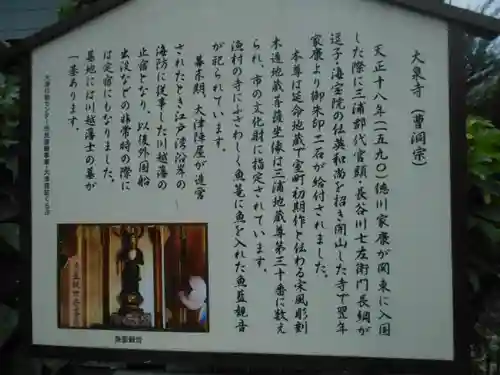 大泉寺（曹洞宗）
天正十八年（一五九〇）徳川家康が関東に入国
した際に三浦郡代官頭・長谷川七左衛門長綱が
逗子・海宝院の仏英和尚を招き開山した寺で翌年
家康より御朱印二石が給付されました。
本尊は延命地蔵で室町初期作と伝わる宋風彫刻
木造地蔵菩薩坐像は三浦地蔵尊第三十番に数え
られ、市の文化財に指定されています。
漁村の寺にふさわしく魚籠に魚を入れた魚藍観音
が祀られています。
幕末期、大津陣屋が造営
されたとき江戸湾沿岸の
海防に従事した川越藩の
止宿となり、以後外国船
出没などの非常時の際に
は定宿にもなりました。
墓地には川越藩士の墓が
一基あります。
大津行政センター市民協働事業・大津探訪くらぶ
魚籃観音